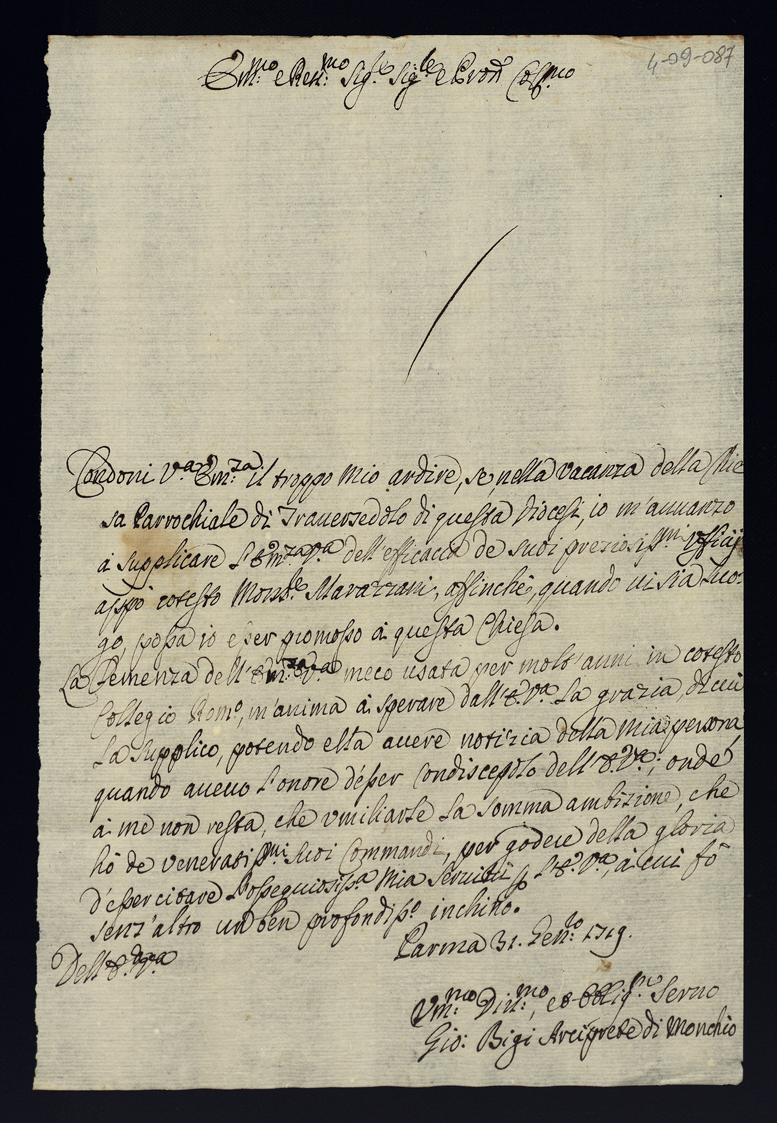 4-09-087
Em:mo e Rev:mo Sig.r Sig.re e Pron Col:mo
Condoni V.a Em:za il troppo mio ardire, se, nella vacanza della Chie
sa Parrochiale di Traversedolo di questa Diocesi, io m'auuanzo
à supplicare l'Em:za V.a dell'efficaccia de suoi preziosiss:mi Vfficij
appò cotesto Mons.re Marazzani, affinchè, quando ui sia luo:
go, possa io esser promosso à questa Chiesa.
La Clemenza dell'Em:za V.a meco usata per molt'anni in cotesto
Collegio Rom.o, m'anima à sperare dall'E.V.a la grazia, di cui
la supplico, potendo ella auere notizia della mia persona,
quando aueuo l'onore d'esser Condiscepolo dell'E.V.a; onde
à me non resta, che vmiliarle la somma ambizione, che
hò de veneratiss:mi suoi Commandi, per godere della gloria
d'esercitare l'ossequiosiss.a mia seruitù p l'E.V.a, à cui fò
senz'altro un ben profondiss.o inchino.
Parma 31. Gen:o 1719.
Dell'E. V.a
Vm:mo Diu:mo, ed Obblig:mo Seruo
Gio: Bigi Arciprete di Monchio